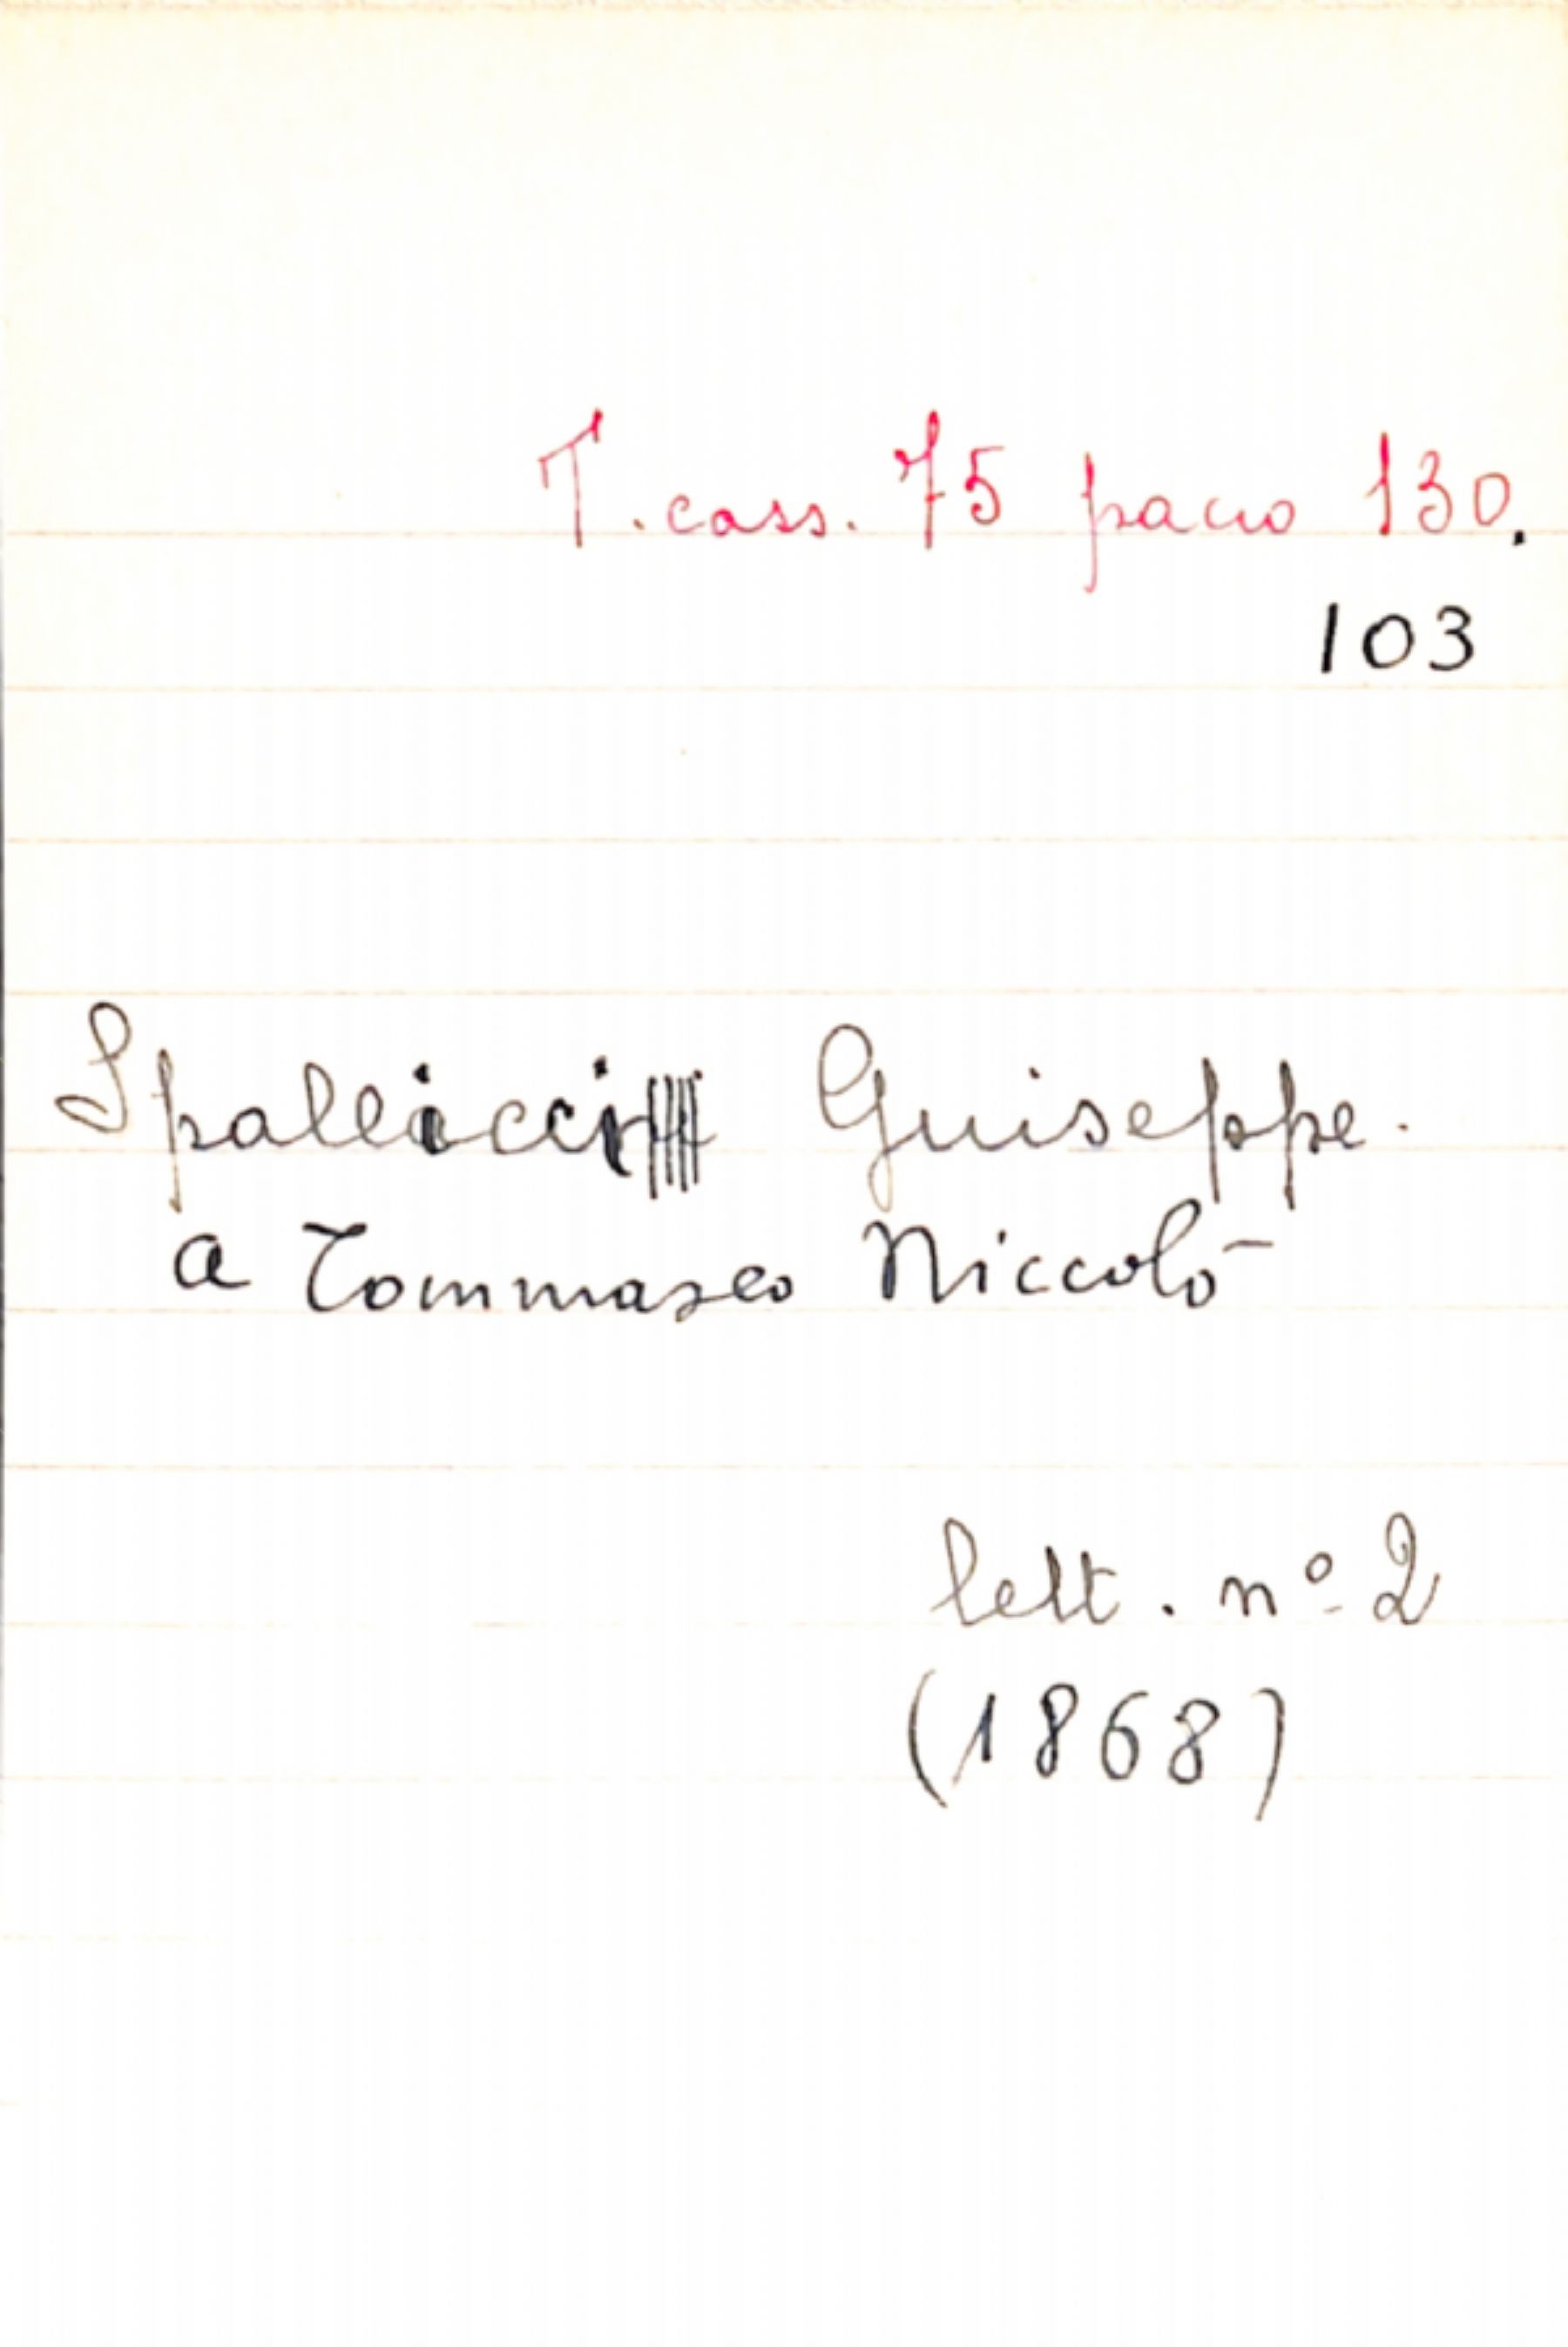 T. cass. 75 pacco 130.
103
Spallicci Giuseppe.
a Tommaseo Niccolò
lett. nº 2
(1868)